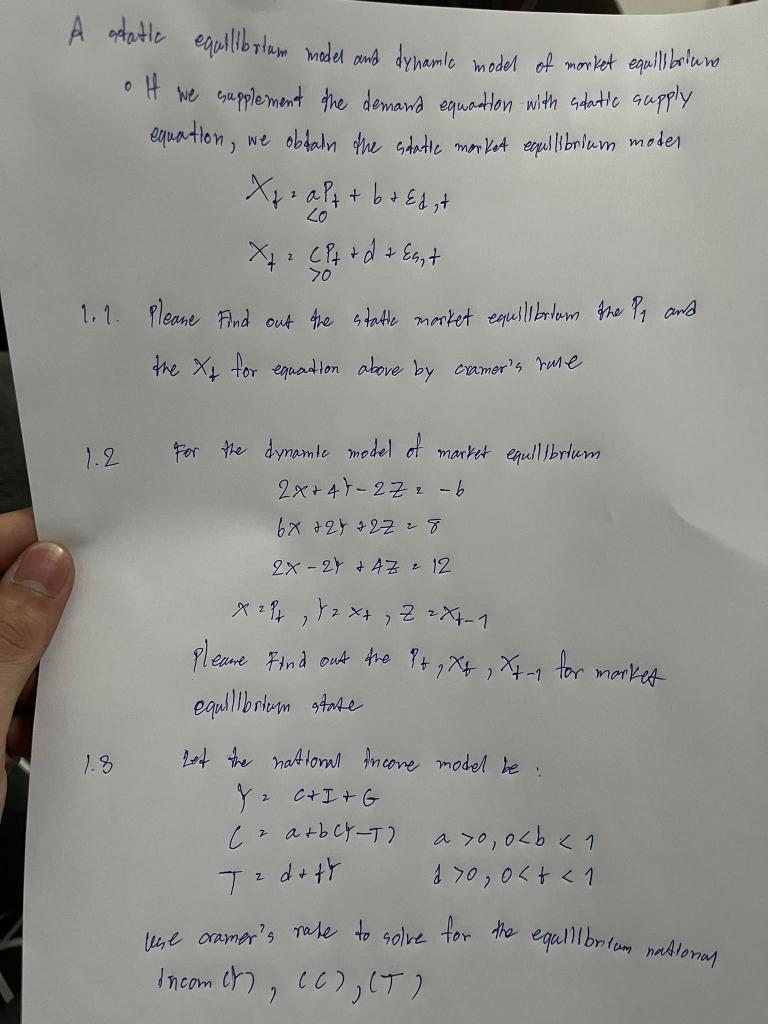 A static equilibrium model and dynamic model of market equilibrium
∘ If we supplement the demand equation with static supply
equation, we obtain the static market equilibrium model
X_t = aP_t + b + ε_d,t
<0
X_t = cP_t + d + ε_s,t
>0
1.1. Please Find out the static market equilibrium the P_t and
the X_t for equation above by cramer's rule
1.2 For the dynamic model of market equilibrium
2x + 4Y - 2Z = -6
6x + 2Y + 2Z = 8
2x - 2Y + 4Z = 12
x = P_t , Y = x_t , Z = x_t-1
Please Find out the P_t , X_t , X_t-1 for market
equilibrium state
1.3 Let the national Income model be :
Y = C + I + G
C = a + b(Y-T) a > 0, 0 < b < 1
T = d + tY d > 0, 0 < t < 1
use cramer's rule to solve for the equilibrium national
Incom (Y) , (C) , (T)